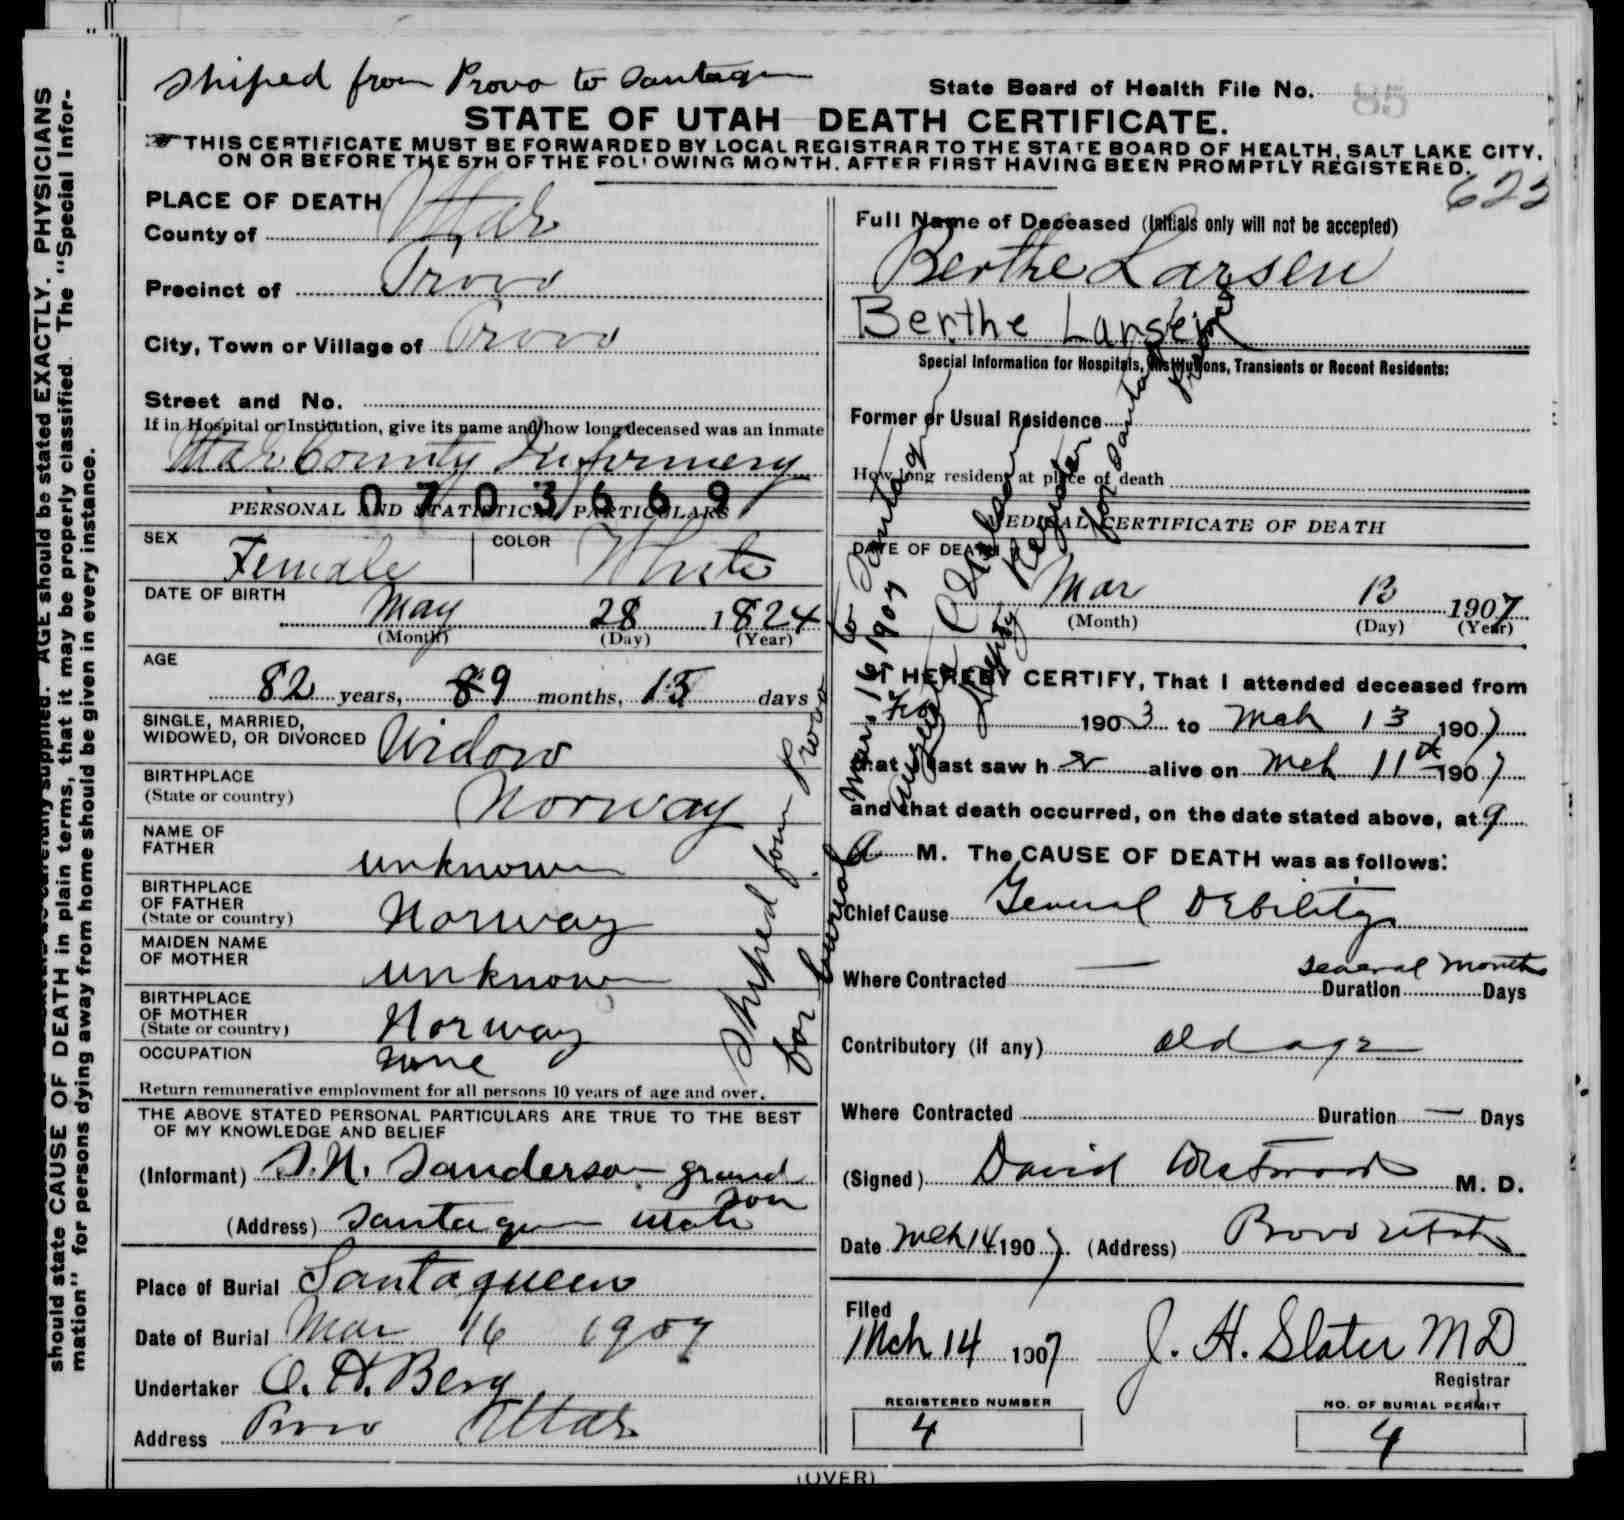 Shiped from Provo to Santaquin
State Board of Health File No. 85
STATE OF UTAH DEATH CERTIFICATE.
THIS CERTIFICATE MUST BE FORWARDED BY LOCAL REGISTRAR TO THE STATE BOARD OF HEALTH, SALT LAKE CITY,
ON OR BEFORE THE 5TH OF THE FOLLOWING MONTH, AFTER FIRST HAVING BEEN PROMPTLY REGISTERED.
623
PLACE OF DEATH
County of Utah
Precinct of Provo
City, Town or Village of Provo
Street and No.
If in Hospital or Institution, give its name and how long deceased was an inmate
Utah County Infirmery
0703669
PERSONAL AND STATISTICAL PARTICULARS
SEX Female COLOR White
DATE OF BIRTH May 28 1824
(Month) (Day) (Year)
AGE
82 years, 89 months, 15 days
SINGLE, MARRIED,
WIDOWED, OR DIVORCED Widow
BIRTHPLACE
(State or country) Norway
NAME OF
FATHER unknown
BIRTHPLACE
OF FATHER
(State or country) Norway
MAIDEN NAME
OF MOTHER unknown
BIRTHPLACE
OF MOTHER
(State or country) Norway
OCCUPATION none
Return remunerative employment for all persons 10 years of age and over.
THE ABOVE STATED PERSONAL PARTICULARS ARE TRUE TO THE BEST
OF MY KNOWLEDGE AND BELIEF
(Informant) S.N. Sanderson grand
son
(Address) Santaquin Utah
Place of Burial Santaqueen
Date of Burial Mar 16 1907
Undertaker O. H. Berg
Address Provo Utah
Full Name of Deceased (Initials only will not be accepted)
Berthe Larsen
Berthe Larsen
Special Information for Hospitals, Institutions, Transients or Recent Residents:
Former or Usual Residence
How long resident at place of death
MEDICAL CERTIFICATE OF DEATH
DATE OF DEATH
Mar 13 1907
(Month) (Day) (Year)
I HEREBY CERTIFY, That I attended deceased from
1903 to Mch 13 1907
that I last saw her alive on Mch 11th 1907
and that death occurred, on the date stated above, at 9
a M. The CAUSE OF DEATH was as follows:
Chief Cause General Debility
Where Contracted — several months
Duration Days
Contributory (if any) old age
Where Contracted Duration — Days
(Signed) David Westwood M. D.
Date Mch 14 1907 (Address) Provo Utah
Filed
Mch 14 1907 J. H. Slater MD
Registrar
REGISTERED NUMBER
4
NO. OF BURIAL PERMIT
4
(OVER)
Shiped from Provo to Santaquin
for burial Mar. 16, 1907
Deputy Register
for Santaquin
should state CAUSE OF DEATH in plain terms, that it may be properly classified. The "Special Infor-
mation" for persons dying away from home should be given in every instance.
supplied. AGE should be stated EXACTLY. PHYSICIANS